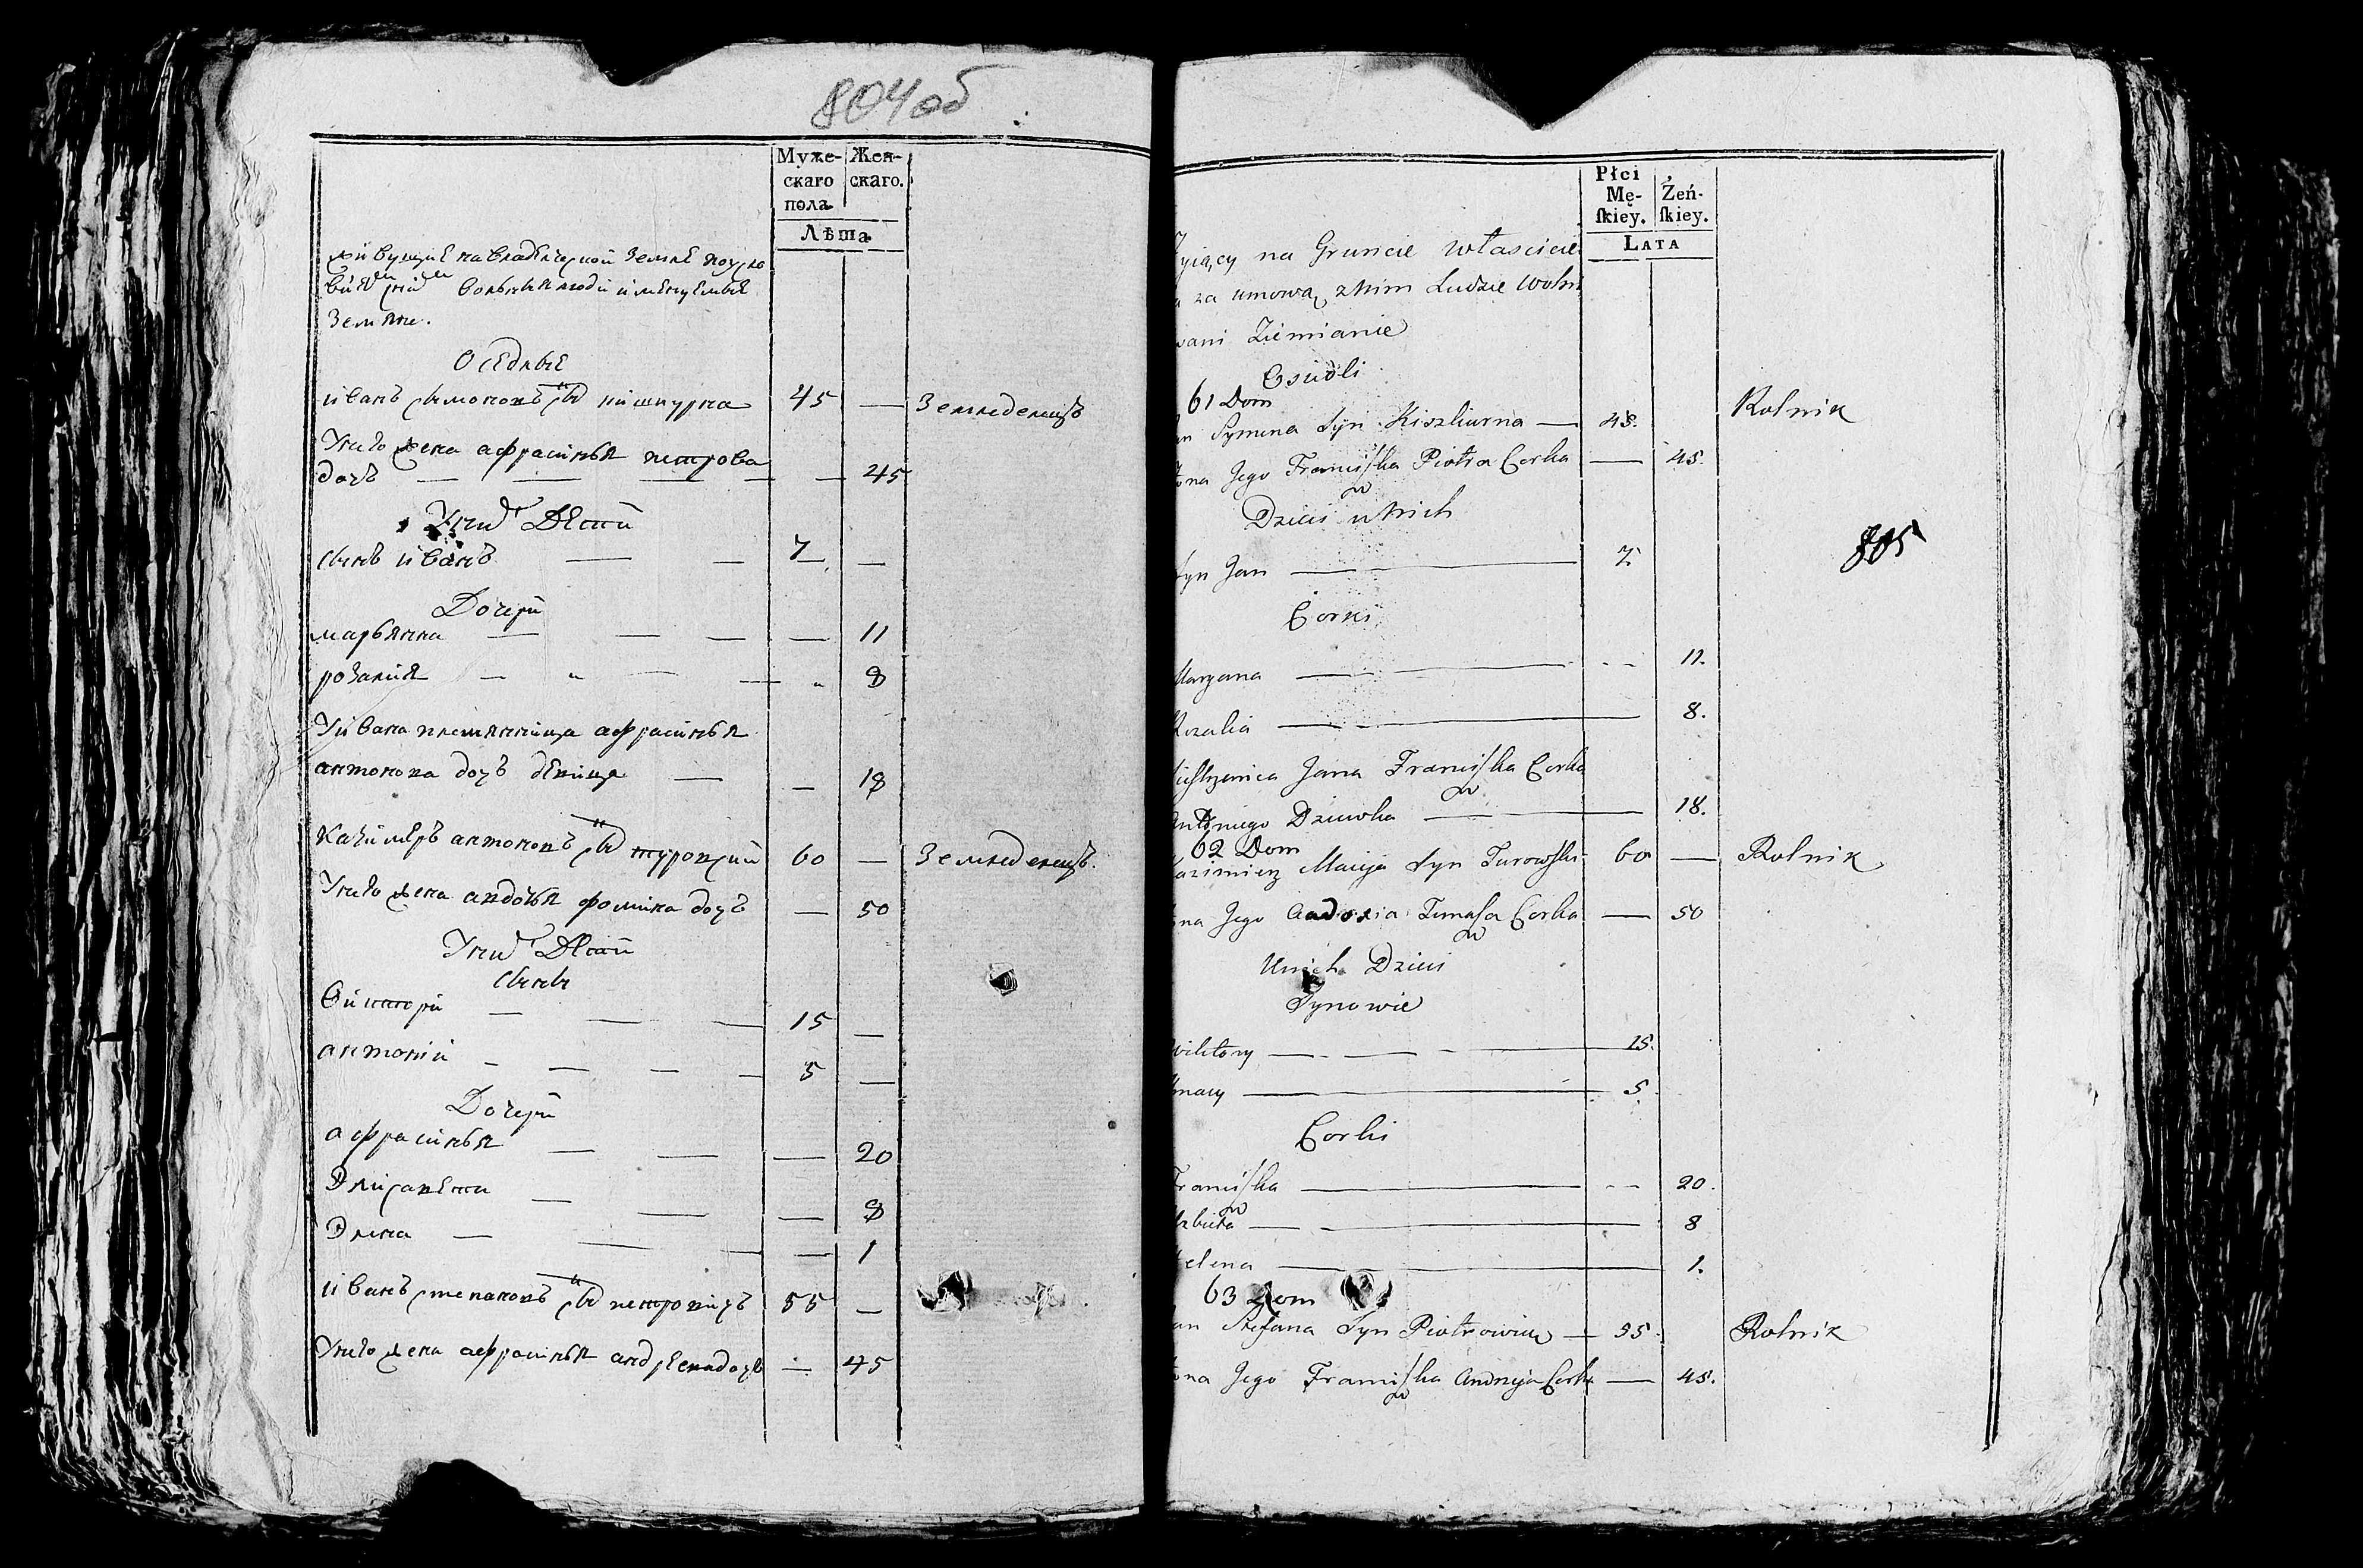 804 об
Муже-
скаго
пола
Жен-
скаго.
Лѣта
живущіе на владѣлческой землѣ поусло
вія съ ним вольныя люди именуемые
Земяне.
Оседлые
иванъ сымоновъ сынъ кишкурна 45 — Земледелецъ
Унего жена афрасинья петрова
дочъ — — — — — 45
Уних Дѣти
сынъ иванъ — — 7 —
Дочери
марьянна — — — — 11
розалия — " — — " 8
У ивана племянница афрасинья
антонова дочъ дѣвица — — 18
казимѣръ антоновъ сынъ туровский 60 — Земледелецъ.
Унего жена авдотья фомина дочъ — 50
Уних Дѣти
сыны
викторй — — — 15 —
антоний — — — — 5 —
Дочери
афрасинья — — — 20
Элисавѣта — — — 8
Элена — — — — 1
иванъ степановъ сынъ петровичъ 55 —
Унего жена афрасинья андрѣева дочъ — 45
Płci
Mę-
ſkiey.
Żeń-
ſkiey.
LATA
yiący na Gruncie właściciel
za umową z Nim Ludzie wolni
wani Ziemianie
Osiedli
61 Dom
an Symona Syn Kiszkurna — 45. Rolnik
ona Jego Franciſka Piotra Corka — 45.
Dzieci u Nich
Syn Jan — — 7.
805
Corki
Maryana — — - - 11.
Rozalia — — 8.
Siestrzenica Jana Franciſka Corka
Antoniego Dziewka — — 18.
62 Dom
azimierz Macieja Syn Turowſki 60 — Rolnik
na Jego Audosia Tomaſa Corka — 50
Unich Dzieci
Synowie
wiktory — - — - — 15.
— 5.
Corki
Franciſka — - - 20.
lzbieta — — 8
elena — 1.
63 Dom
an Stefana Syn Piotrowicz — 55. Rolnik
ona Jego Franciſka Andrzeja Corka — 45.